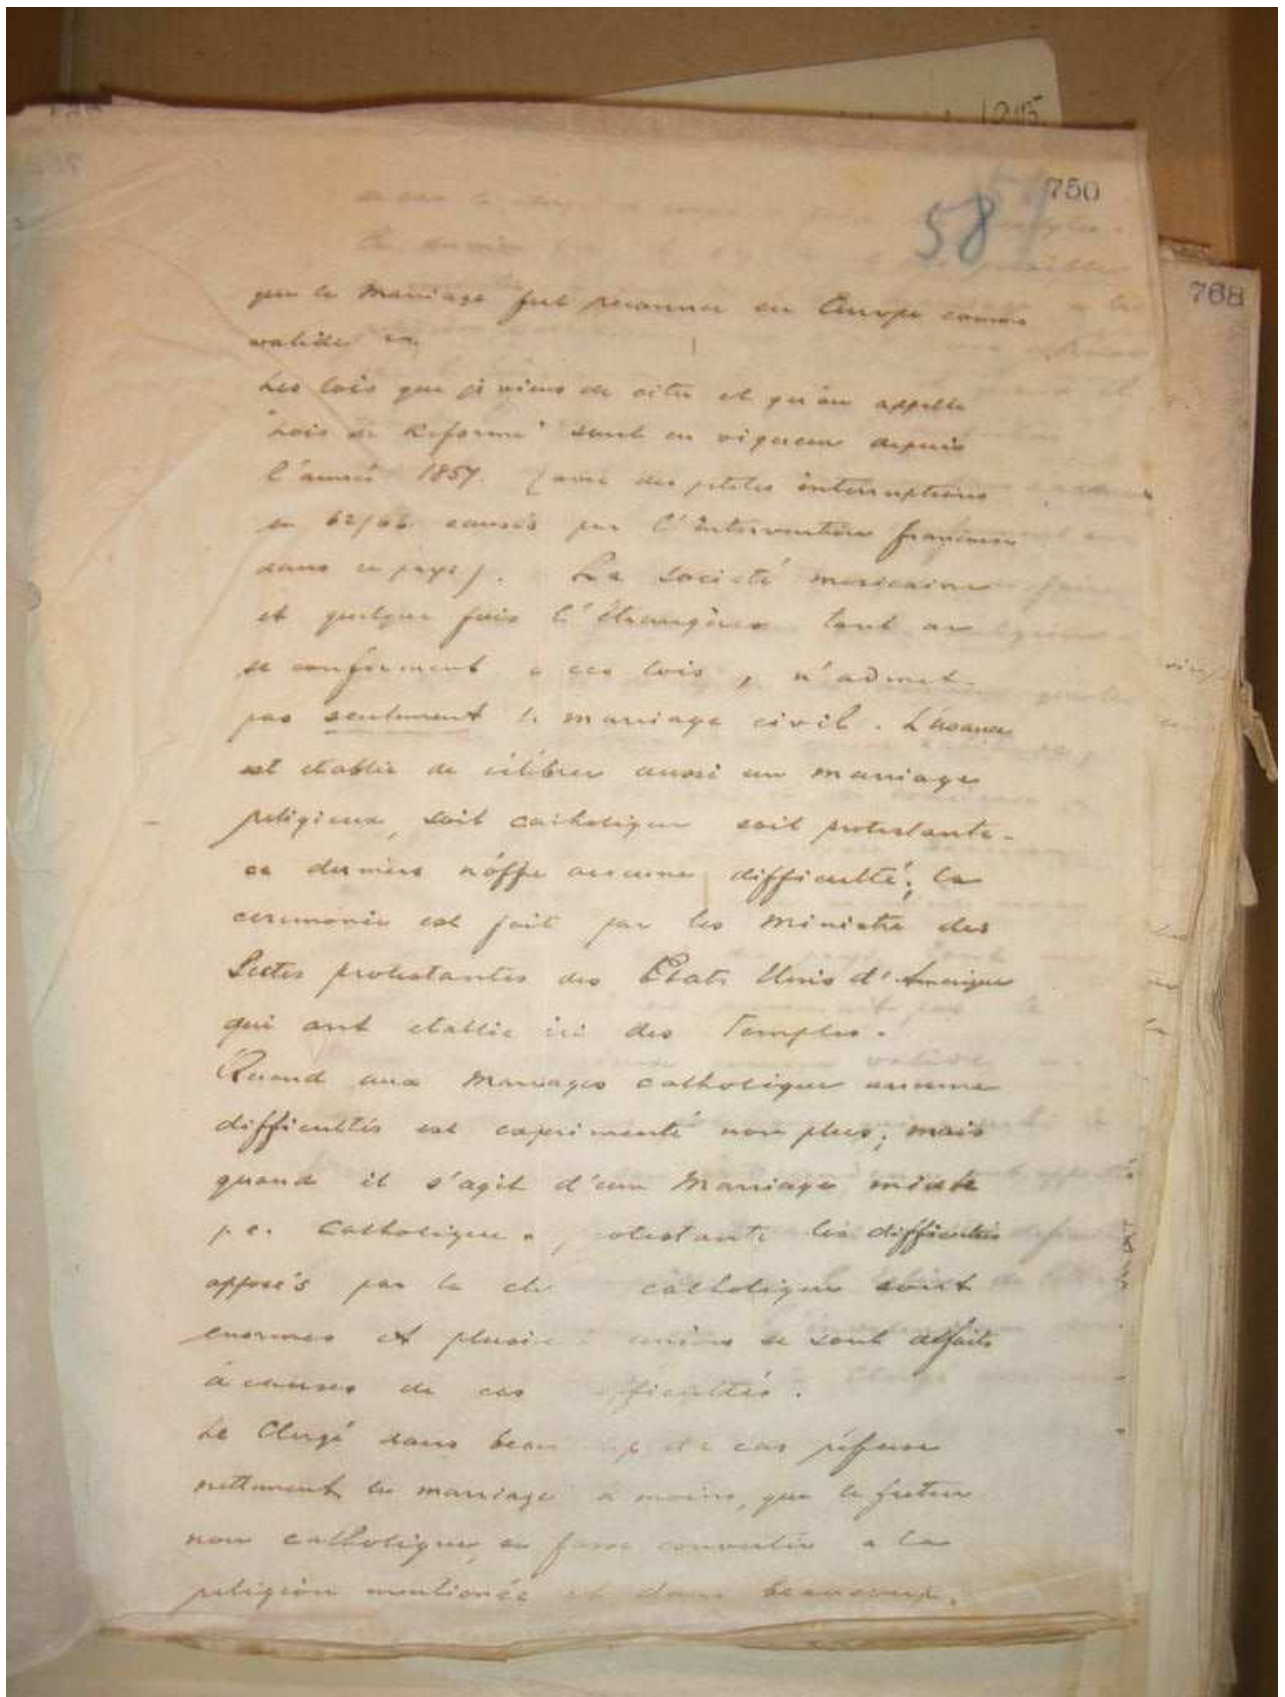 1215
750
58
768
que le Mariage fut reconnu en Europe comme
valide
Les lois que je viens de citer et qu'on appelle
"Lois de Reforme" sont en vigueur depuis
l'année 1857. (avec des petites interruptions
en 62/66 causés par l'intervention française
dans ce pays). La Societé mexicaine
et quelque fois l'étrangères tant au
se conforment a ces lois, n'admet
pas seulement le marriage civil. L'usance
est etablie de célébrer aussi un marriage
religieux, soit catholique soit protestante.
ce derniers n'offre aucune difficulté; la
ceremonie est fait par les Ministre des
Sectes protestantes des Etats Unis d'Amerique
qui ont etablie ici des Temples.
Quand aux Mariages catholique aucune
difficultés est experimenté non plus; mais
quand il s'agit d'un Marriage mixte
p. e. Catholique a otestante les difficultés
opposés par le cle catholique sont
enormes et plusie unions se sont défaits
à causes de ces fficultés.
Le Clergé dans beau p de cas réfuse
nettement le marriage a moins, que le futur
non catholique, se fasse convertir a la
religion mentionée et dans beaucoup.